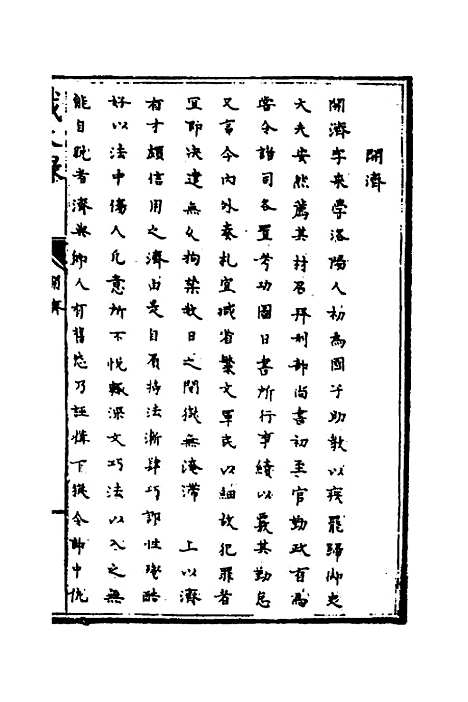 開濟
開濟字來學洛陽人初為國子助教以疾罷歸御史
大夫安然薦其材召拜刑部尚書初至官勤政有為
嘗令諸司各置考功圖日書所行事績以覈其勤怠
又言今內外奏札宜減省繁文軍民以細故犯罪者
宜即決遣無久拘禁數日之間獄無淹滯　上以濟
有才頗信用之濟由是自負持法漸肆巧詐性殘酷
好以法中傷人凡意所不悅輒深文巧法以入之無
能自脫者濟與鄉人有舊怨乃誣構下獄令郎中仇
開濟